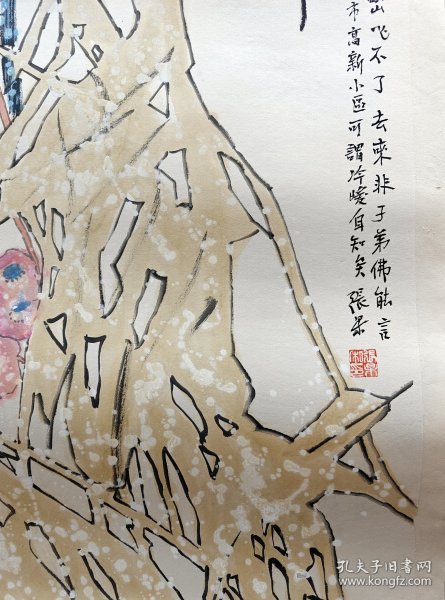 山飞不了去來非子弟佛能言
市高新小區可謂冷暖自知矣 張㬎
孔夫子旧书网
www.kongfz.com